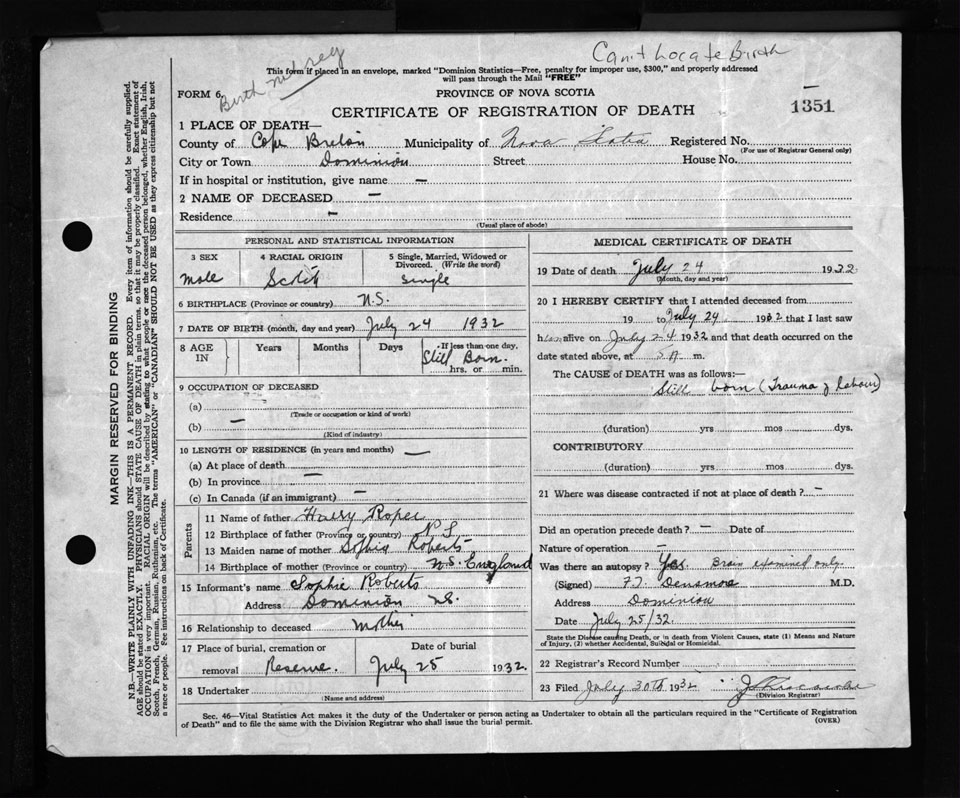 Can't Locate Birth
Birth not reg
This form if placed in an envelope, marked "Dominion Statistics—Free, penalty for improper use, $300," and properly addressed
will pass through the Mail "FREE"
FORM 6.
PROVINCE OF NOVA SCOTIA
CERTIFICATE OF REGISTRATION OF DEATH
1351
1 PLACE OF DEATH—
County of Cape Breton Municipality of Nova Scotia Registered No.
(For use of Registrar General only)
City or Town Dominion Street House No.
If in hospital or institution, give name —
2 NAME OF DECEASED —
Residence —
(Usual place of abode)
PERSONAL AND STATISTICAL INFORMATION
3 SEX
male
4 RACIAL ORIGIN
Scotch
5 Single, Married, Widowed or
Divorced. (Write the word)
Single
6 BIRTHPLACE (Province or country) N.S.
7 DATE OF BIRTH (month, day and year) July 24 1932
8 AGE
IN
Years Months Days
If less than one day,
Still Born.
hrs. or min.
9 OCCUPATION OF DECEASED
(a)
(Trade or occupation or kind of work)
(b) —
(Kind of industry)
10 LENGTH OF RESIDENCE (in years and months) —
(a) At place of death
(b) In province —
(c) In Canada (if an immigrant) —
Parents
11 Name of father Harry Roper
12 Birthplace of father (Province or country) N S
13 Maiden name of mother Sophie Roberts
14 Birthplace of mother (Province or country) N.S. England
15 Informant's name Sophie Roberts
Address Dominion NS.
16 Relationship to deceased Mother
17 Place of burial, cremation or
Date of burial
removal Reserve. July 25 1932
18 Undertaker
(Name and address)
MEDICAL CERTIFICATE OF DEATH
19 Date of death July 24 1932
(Month, day and year)
20 I HEREBY CERTIFY that I attended deceased from
19 to July 24 1932 that I last saw
h alive on July 24 1932 and that death occurred on the
date stated above, at m.
The CAUSE of DEATH was as follows:—
Still born (Trauma of labour)
(duration) yrs mos dys.
CONTRIBUTORY
(duration) yrs mos dys.
21 Where was disease contracted if not at place of death? —
Did an operation precede death? — Date of
Nature of operation —
Was there an autopsy? Yes. Brain examined only.
(Signed) Densmore M.D.
Address Dominion
Date July 25/32.
State the Disease causing Death, or in death from Violent Causes, state (1) Means and Nature
of Injury, (2) whether Accidental, Suicidal or Homicidal.
22 Registrar's Record Number
23 Filed July 30th 1932
(Division Registrar)
Sec. 46—Vital Statistics Act makes it the duty of the Undertaker or person acting as Undertaker to obtain all the particulars required in the "Certificate of Registration
of Death" and to file the same with the Division Registrar who shall issue the burial permit.
(OVER)
MARGIN RESERVED FOR BINDING
N.B.—WRITE PLAINLY WITH UNFADING INK—THIS IS A PERMANENT RECORD. Every item of information should be carefully supplied.
AGE should be stated EXACTLY. PHYSICIANS should STATE CAUSE OF DEATH in plain terms, so that it may be properly classified. Exact statement of
OCCUPATION is very important. RACIAL ORIGIN will be described by stating to what people or race the deceased person belonged, whether English, Irish,
Scotch, French, German, Russian, Ruthenian, etc. The terms "AMERICAN" or "CANADIAN" SHOULD NOT BE USED as they express citizenship but not
a race or people. See instructions on back of Certificate.